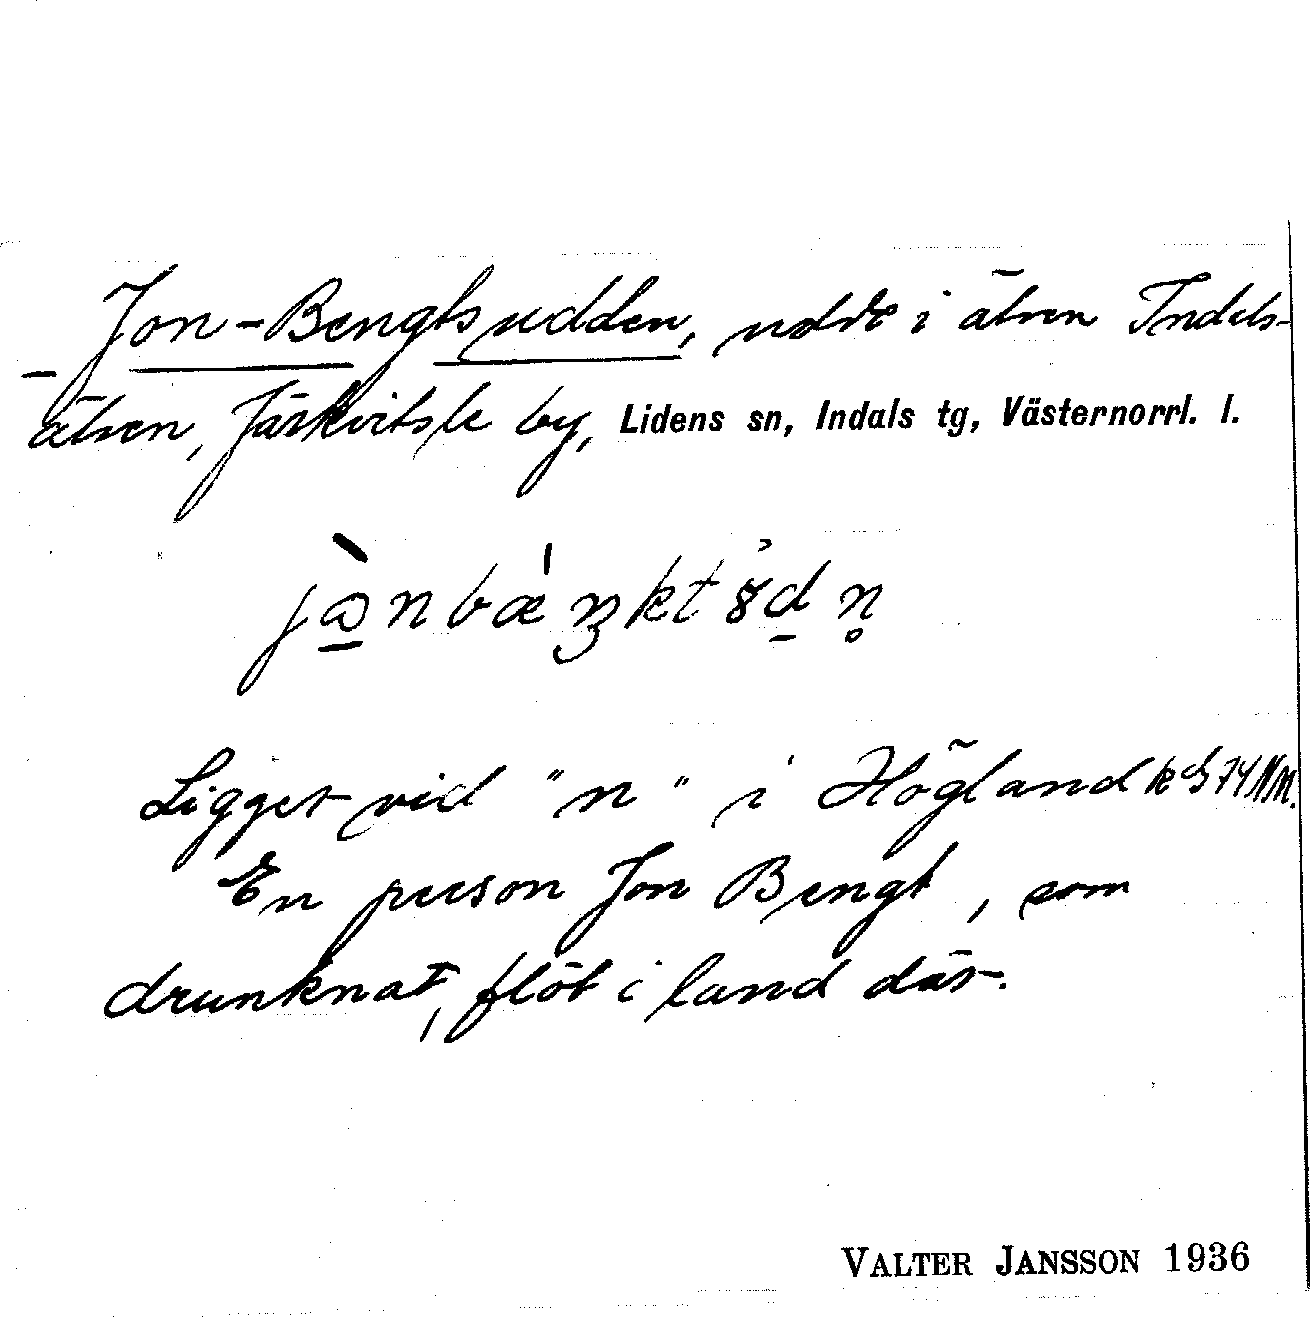 Jon-Bengtsudden, udde i älven Indals-
älven, Järkvitsle by, Lidens sn, Indals tg, Västernorrl. l.
Ligger vid "n" i Högland
En person Jon Bengt, som
drunknat, flöt i land där.
VALTER JANSSON 1936